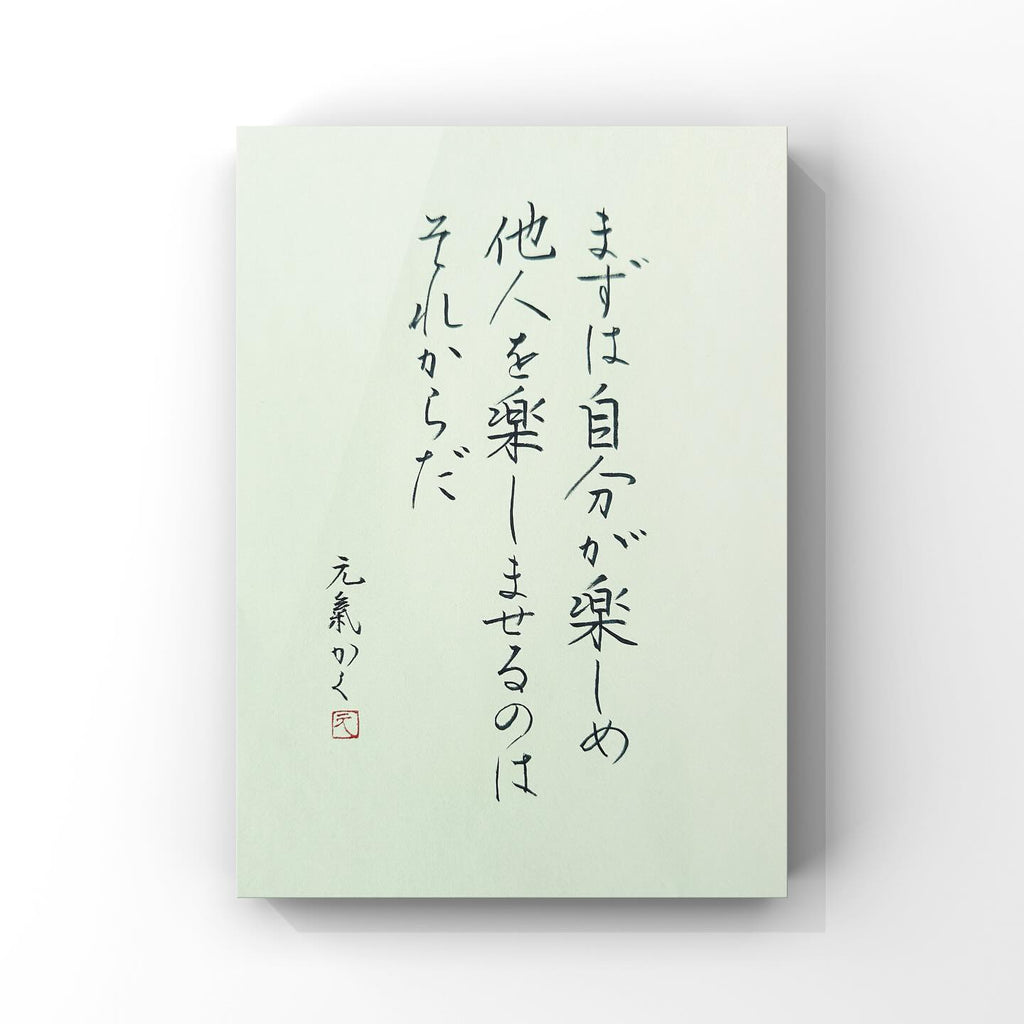 まずは自分が楽しめ
他人を楽しませるのは
それからだ
元氣かく
元